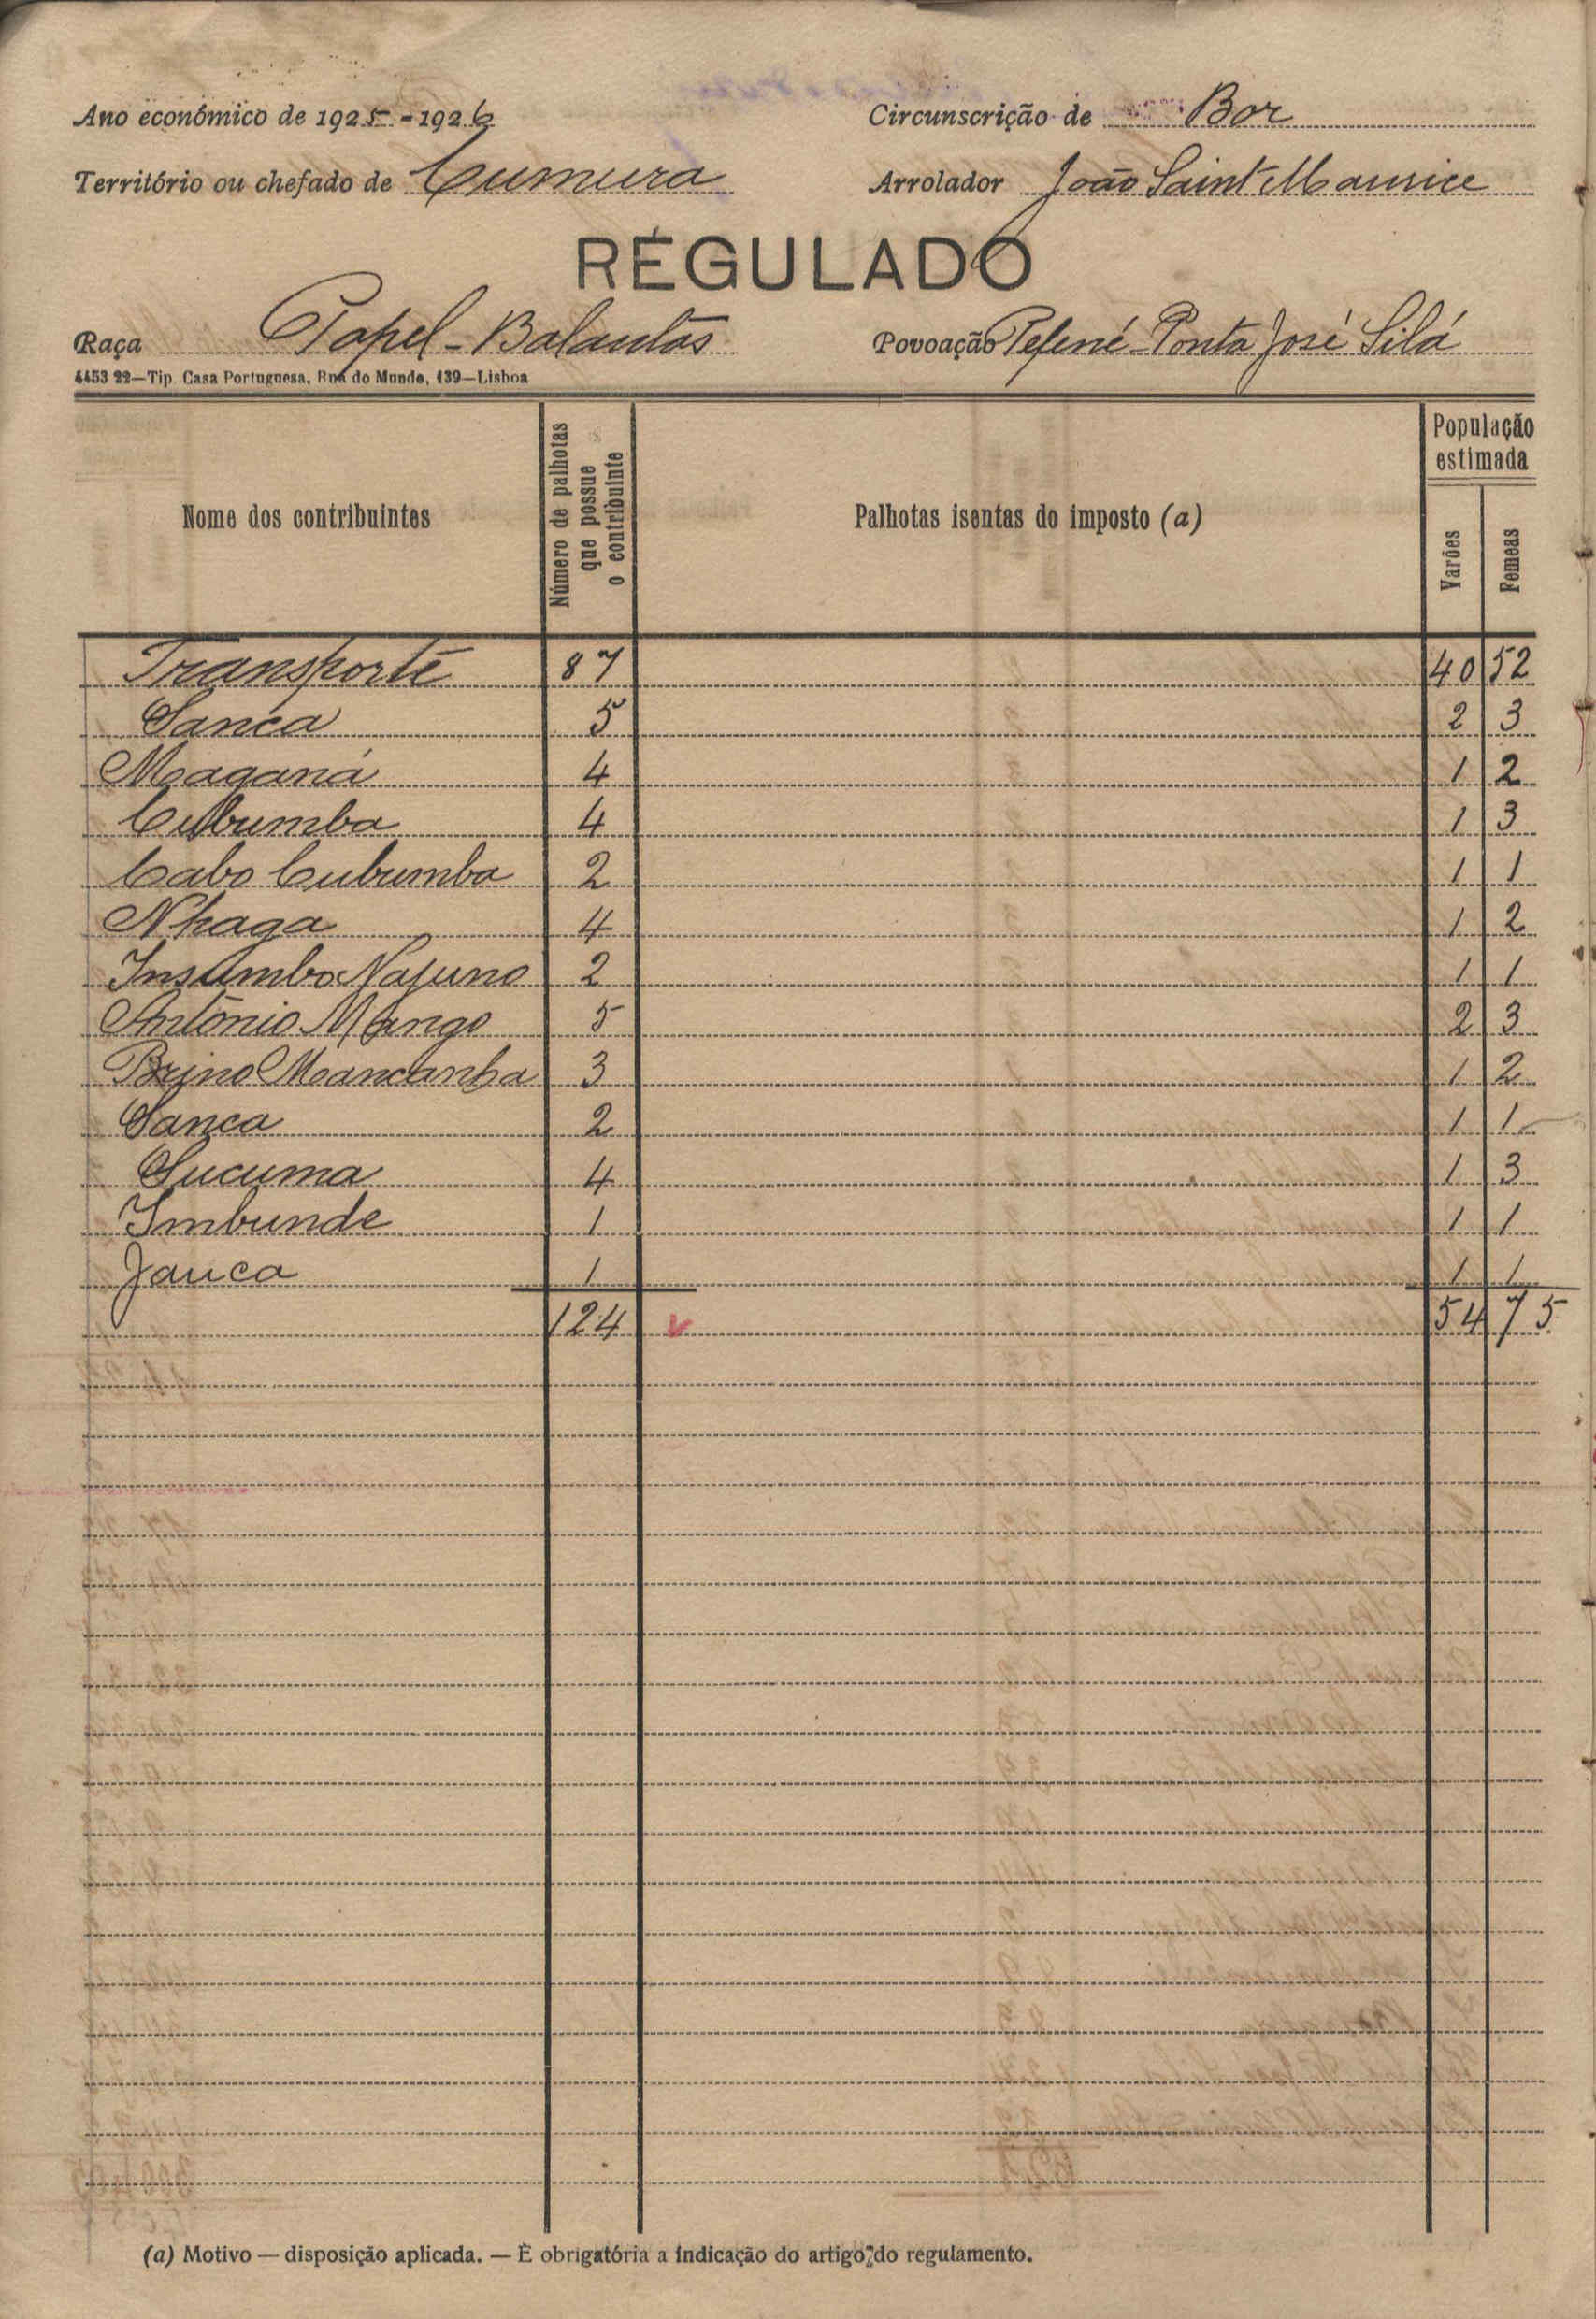 Ano económico de 1925-1926 Circunscrição de Bor
Território ou chefado de Cumura Arrolador João Saint Maurice
RÉGULADO
Raça Papel-Balantas Povoação Pefené-Ponta José Silá
4453 22—Tip. Casa Portuguesa, Rua do Mundo, 139—Lisboa
Nome dos contribuintes Número de palhotas que possue o contribuinte Palhotas isentas do imposto (a) População estimada Varões Femeas
Transporte 87 40 52
Sanca 5 2 3
Maganá 4 1 2
Cubumba 4 1 3
Cabo Cubumba 2 1 1
Nhaga 4 1 2
Insumbo Najuno 2 1 1
António Mango 5 2 3
Brino Mancanha 3 1 2
Sanca 2 1 1
Sucuma 4 1 3
Imbunde 1 1 1
Jauca 1 1 1
124 54 75
(a) Motivo — disposição aplicada. — É obrigatória a indicação do artigo do regulamento.